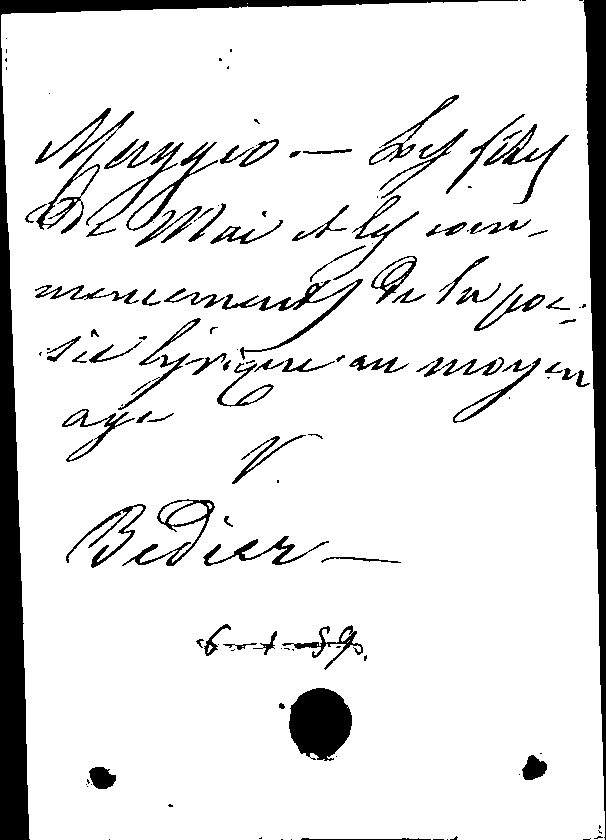 Maggio. — Les fêtes
de Mai et les com-
mencements de la poé-
sie lyrique au moyen
age
V.
Bedier —
6-1-59.